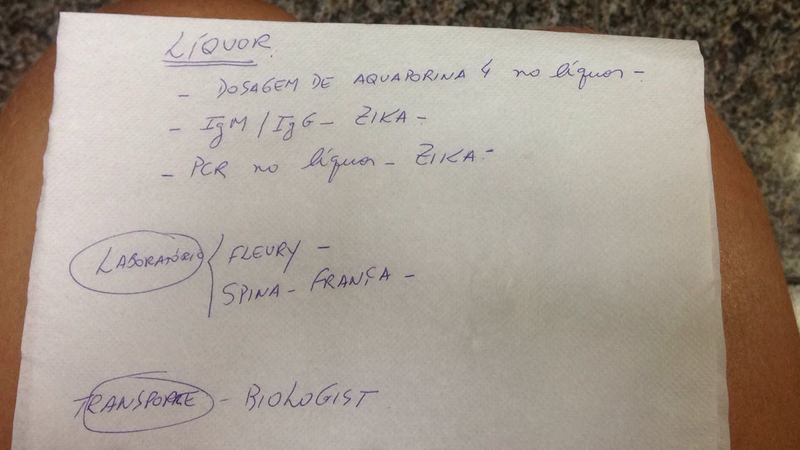 LÍQUOR
- DOSAGEM DE AQUAPORINA 4 no líquor -
- IgM / IgG - ZIKA -
- PCR no líquor - ZIKA -
LABORATÓRIO { FLEURY -
SPINA - FRANÇA -
TRANSPORTE - BIOLOGIST